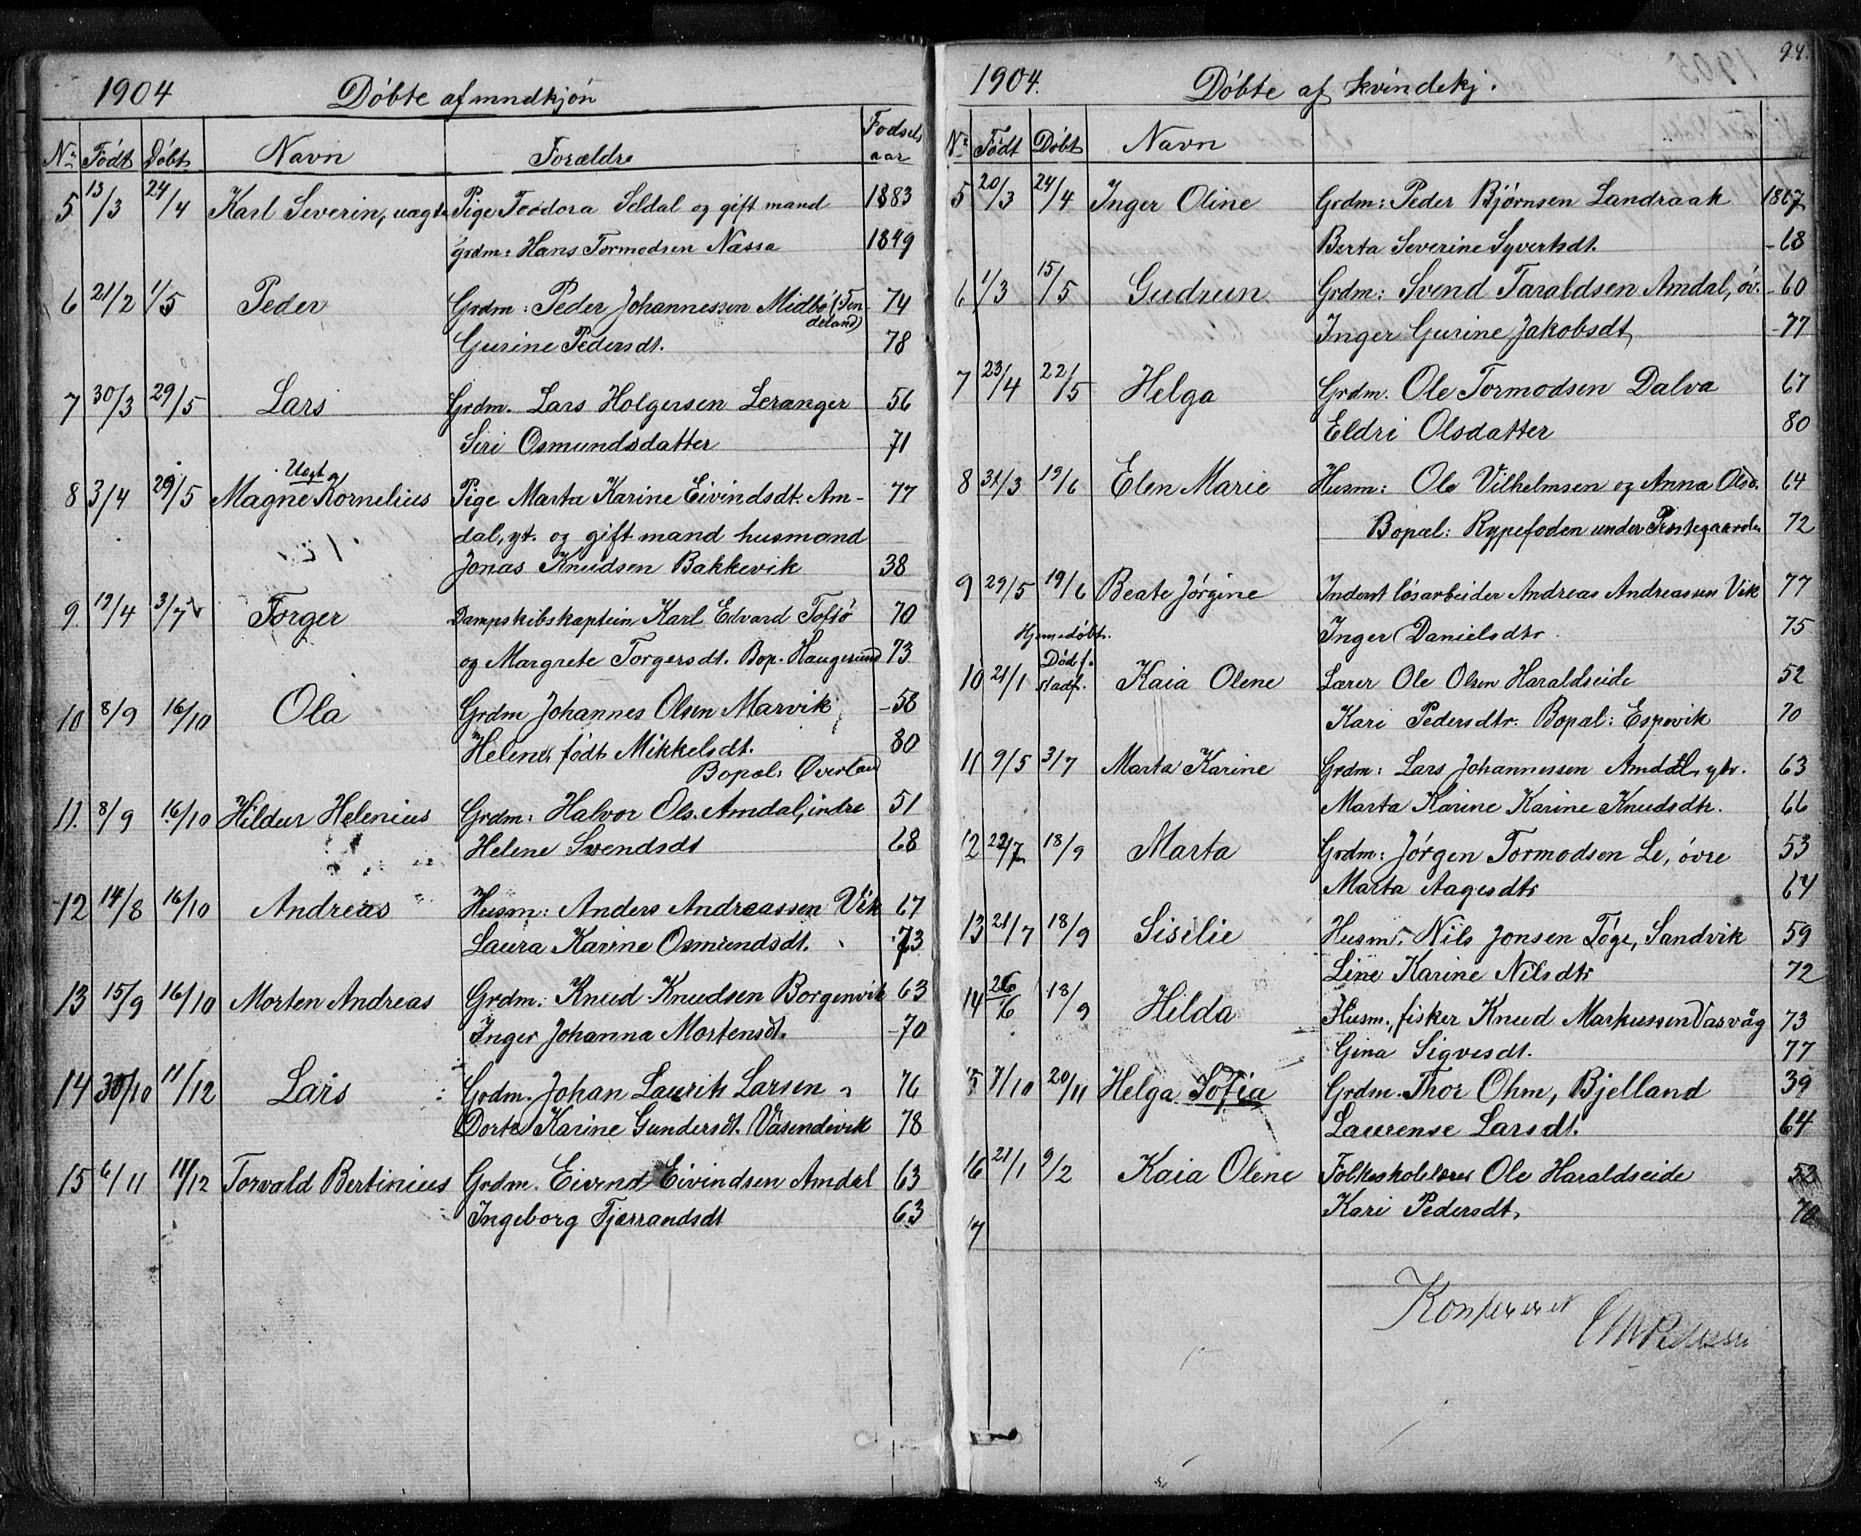 1904 Døbte af mandkjøn
No Født Døbt Navn Forældre Fødsels
aar
5 13/3 24/4 Karl Severin, uægte Pige Teodora Seldal og gift mand 1883
grdm: Hans Tormodsen Næssa 1849
6 21/2 1/5 Peder Grdm: Peder Johannessen Midbø (Ten- 74
deland)
Gurine Pedersdt. 78
7 30/3 29/5 Lars Grdm. Lars Holgersen Leranger 56
Siri Osmundsdatter 71
Uægt
8 3/4 29/5 Magne Kornelius Pige Marta Karine Eivindsdt. Am- 77
dal, yt. og gift mand husmand
Jonas Knudsen Bakkevik 38
9. 19/4 3/7 Torger Dampskibskaptein Karl Edvard Toftø 70
og Margrete Torgersdt. Bop. Haugesund 73
10 8/9 16/10 Ola Grdm Johannes Olsen Marvik -58
Helene født Mikkelsdt. 80
Bopæl: Øverland
11. 8/9 16/10 Hildur Helenius Grdm: Halvor Ols. Amdal, indre 51
Helene Svendsdt 68
12 14/8 16/10 Andreas Husm: Anders Andreassen Vik 67
Laura Karine Osmundsdt. 73
13 15/9 16/10 Morten Andreas Grdm: Knud Knudsen Borgenvik 63
Inger Johanna Mortensdt. -70
14 30/10 11/12 Lars Grdm. Johan Laurits Larsen 76
Dorte Karine Gundersdt. Vasendevik 78
15 6/11 11/12 Torvald Bertinius Grdm. Eivind Eivindsen Amdal 63
Ingeborg Tjerrandsdt 63
94.
1904. Døbte af kvindekj.
No Født Døbt Navn
5 20/3 24/4 Inger Oline Grdm: Peder Bjørnsen Landraak 1867
Berta Severine Syvertsdt. -68
6 1/3 15/5 Gudrun Grdm: Svend Taraldsen Amdal, øv. -60
Inger Gurine Jakobsdt, -77
7 23/4 22/5 Helga Grdm. Ole Tormodsen Dalva 67
Eldri Olsdatter 80
8 31/3 19/6 Elen Marie Husm: Ole Vilhelmsen og Anna Olsd. 64
Bopæl: Rypefoden under Præstegaarden 72
9 29/5 19/6 Beate Jørgine Inderst løsarbeider Andreas Andreassen Vik 77
Inger Danielsdtr. 75
Hjemmedøbt.
Død f.
10 21/1 stadf. Kaia Olene Lærer Ole Olsen Haraldseide 52
Kari Pedersdtr. Bopæl: Espevik 70
11 9/5 3/7 Marta Karine Grdm: Lars Johannessen Amdal, ytr. 63
Marta Karine Karine Knudsdtr. 66
12 22/7 18/9 Marta Grdm: Jørgen Tormodsen Le, øvre 53
Marta Aagesdtr 64
13 21/7 18/9 Siselie Husm. Nils Jonsen Tøge, Sandvik 59
Line Karine Nilsdtr 72
14 26/6 18/9 Hilda Husm., fisker Knud Markussen Vasvåg 73
Gina Sigvesdt. 77
15 7/10 20/11 Helga Sofia Grdm. Thor Ohm, Bjelland 39
Laurense Larsdt. 64
16 21/1 9/2 Kaia Olene Folkeskolelærer Ole Haraldseide 52
Kari Pedersdt, 70
17
Konfereret